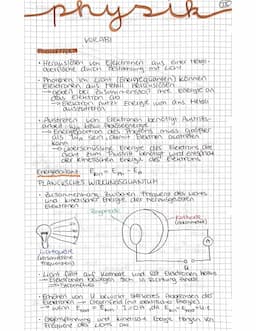 physik
VORABI
• Herauslösen von Elektronen aus einer Metall-
oberfläche durch Bestrahlung mit Licht
• Photonen im Licht (Energiequanten) können
Elektronen aus Metall herauslösen
→ geben bei Zusammenstoß ihre Energie an
das Elektron ab
→ Elektron nutzt Energie um aus Metall
auszutreten
• Austreten von Elektronen benötigt Austritts-
arbeit
→ Energieportion des Photons muss größer
als sein, damit Elektron austreten
kann
→ überschüssige Energie des Elektrons die
nicht zum Austritt benötigt wird entspricht
der kinetischen Energie des Elektrons
Energiebilanz:
PLANCK'SCHES WIRKUNGSQUANTUM
• Zusammenhang zwischen Frequenz des Lichts
und kinetischer Energie der herausgelösten
Elektronen
Ringanode
Kathode
Lichtquelle
(verschiedene
Frequenzen)
• Licht fällt auf Kathode und löst Elektronen heraus
→ Elektronen bewegen sich in Richtung Anode
→ Stromfluss
• Erhöhen von U bewirkt stärkeres Abbremsen der
Elektronen → Gegenfeld
• Gegenspannung und kinetische Energie hängen von
Frequenz des Lichts ab